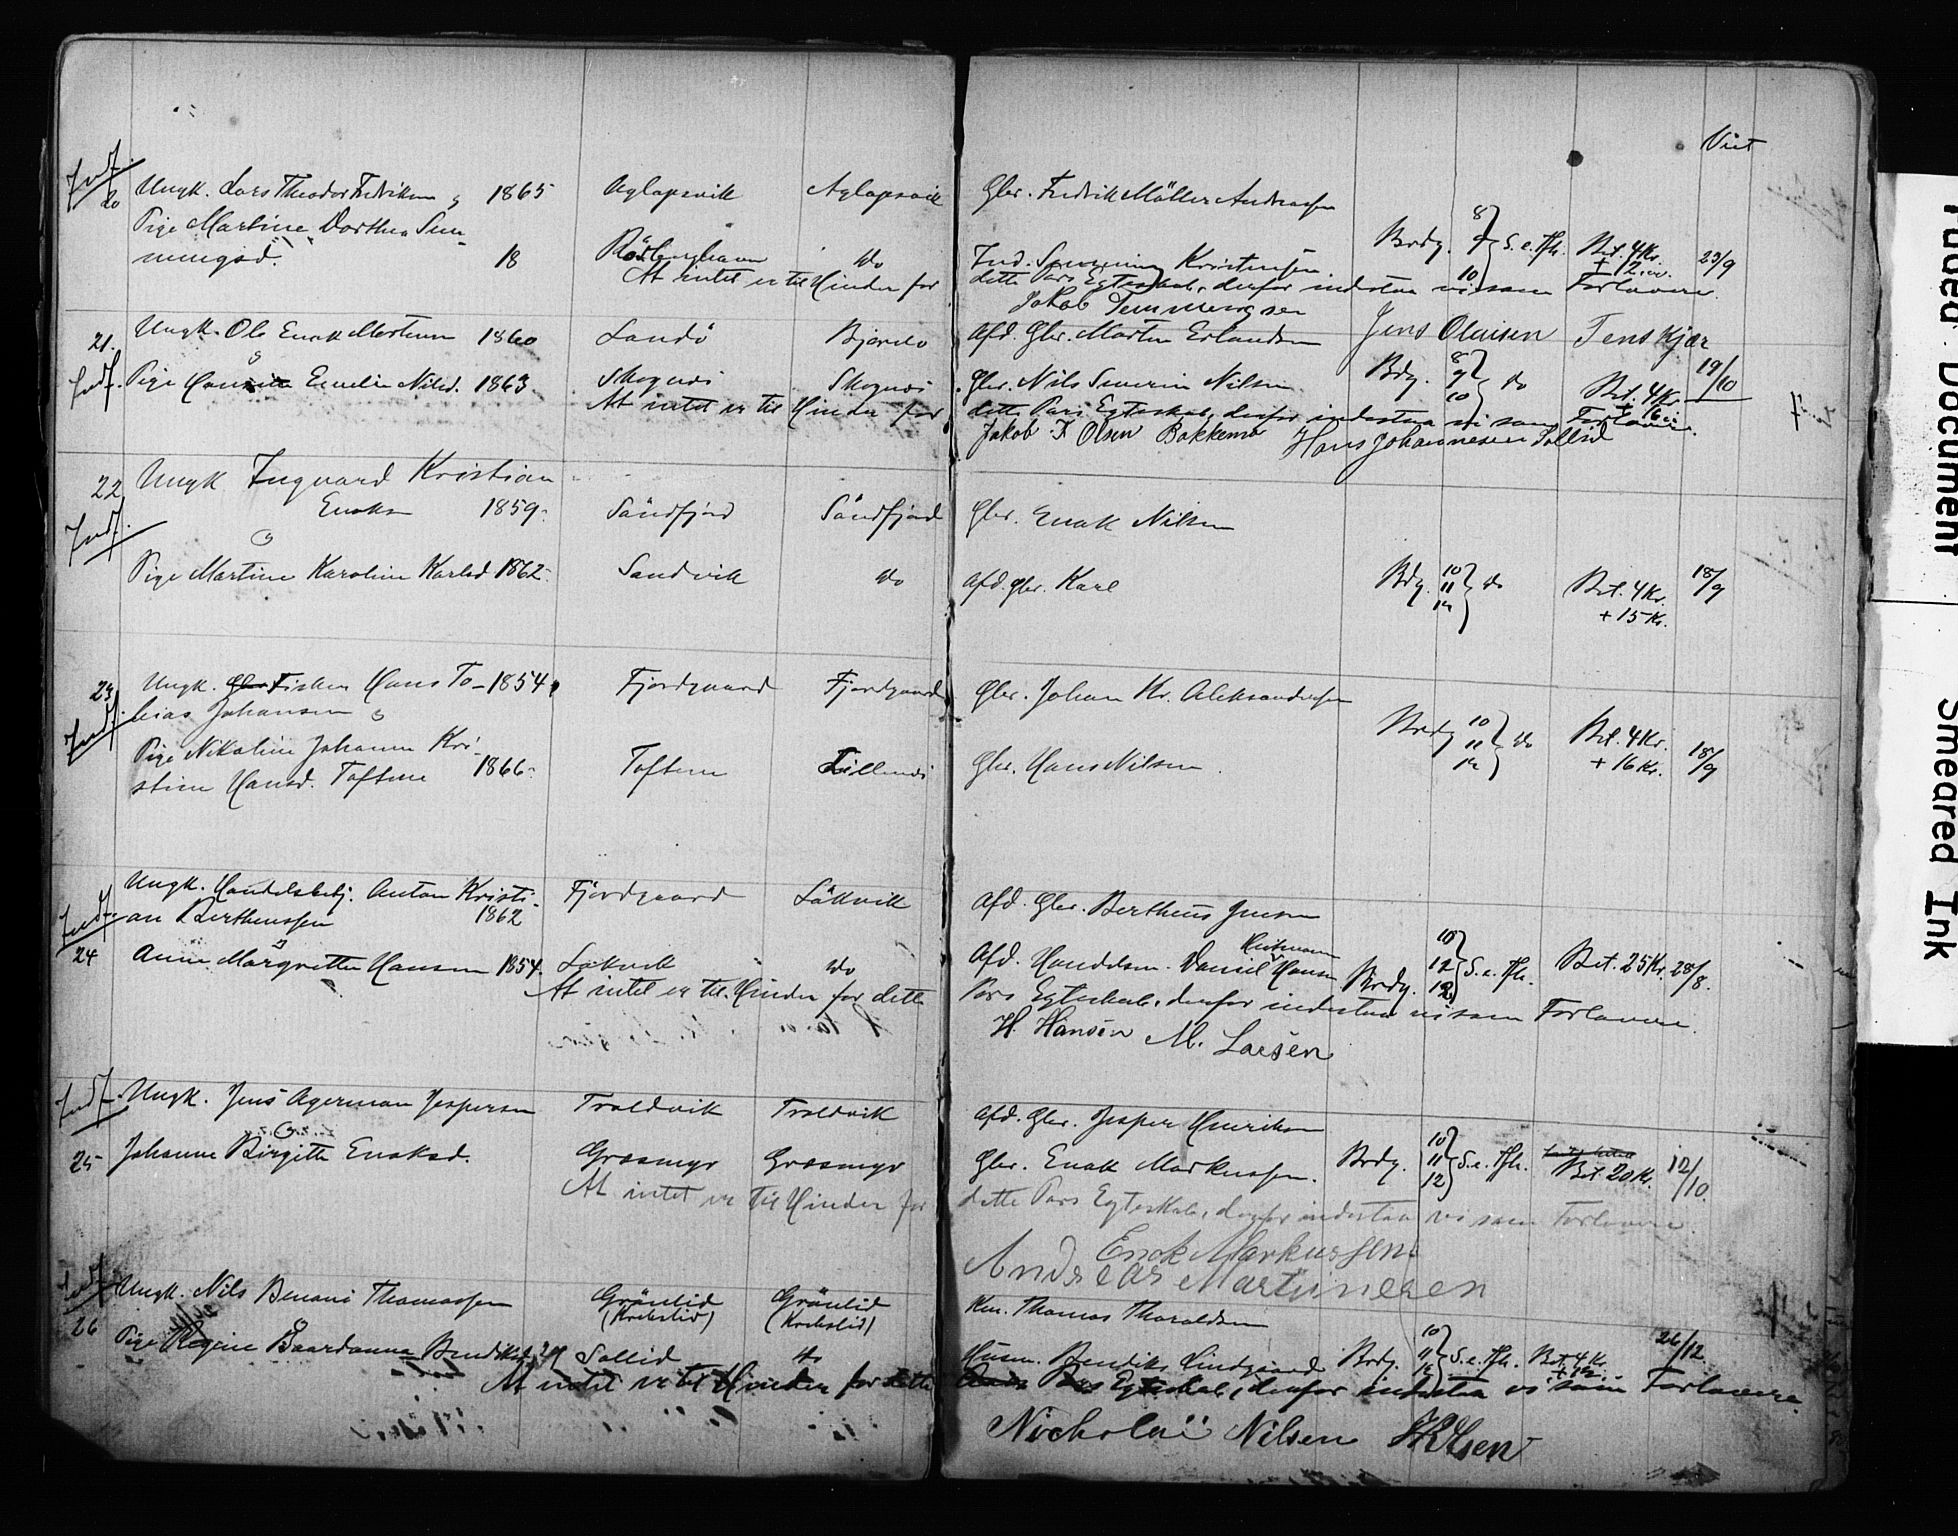 Viet
Indf.
20 Ungk. Lars Theodor Fredriksen & 1865 Aglapsvik Aglapsvik Gbr. Fredrik Möller Andreasen
Pige Martine Dorthea Sem-
mingsd. 18 do Ind. Kristensen. Brdg. 8 9 10 } S. e. Th. Bet. 4 Kr. 23/9
At intet er til Hinder for dette Pars Egteskab, derfor indestaa vi som Forlovere.
Jakob Temmengsen Jens Olaisen Jens Kjær
21. Ungk. Ole Enok Martinsen 1860 Sandö Bjorelv Afd. Gbr. Martin Erlandsen
&
Indf. Pige Emelie Nilsd. 1863 Skognes Skognes Gbr. Nils Severin Nilsen Brdg. 8 9 10 } do Bet. 4 Kr. 19/10
At intet er til Hinder for dette Pars Egteskab, derfor indestaa vi som Forlovere.
Jakob K Olsen Bakkemo Hans Johannesen Sollid
22 Ungk. Ingvard Kristian
Indf. Enoksen 1859. Sandfjord Sandfjord Gbr. Enok Nilsen
&
Pige Martine Karoline Karlsd 1862. Sandvik do Afd. Gbr. Karl Brdg. 10 11 12 } do Bet. 4 Kr. 18/9
+ 15 Kr.
23 Ungk. Fisker Hans To- 1854 Fjordgaard Fjordgaard Gbr. Johan Kr. Aleksandersen
Indf. bias Johansen &
Pige Nikoline Johanne Kri-
stine Hansd. Toftene 1866. Toftene Lillenes Gbr. Hans Nilsen. Brdg. 10 11 12 } do Bet. 4 Kr. 18/9
+ 16 Kr.
Indf. Ungk. Handelsbetj. Anton Kristi-
an Berthenssen 1862 Fjordgaard Lökvik Afd. Gbr. Bertheus Jensen
&
24 Anne Margrethe Hansen 1854. Lökvik do Afd. Handelsm. Daniel Heitmann Hansen Brdg. 10 12 } S. e. Th. Bet. 25 Kr. 28/8.
At intet er til Hinder for dette Pars Egteskab, derfor indestaa vi som Forlovere.
H Hansen M. Larsen
Indf. Ungk. Jens Agerman Jespersen Troldvik Troldvik Afd. Gbr. Jesper Henriksen
&
25 Johanne Birgitte Enoksd. Græsmyr Græsmyr Gbr. Enok Markussen. Brdg. 10 11 12 } S. e. Th. Bet. 20 Kr. 12/10.
At intet er til Hinder for dette Pars Egteskab, derfor indestaa vi som Forlovere.
Enok Markussen
Andreas Martinesen
Indf. Ungk. Nils Benoni Thomassen Grönlid Grönlid Thomas Tharaldsen
(Krokslid) (Krokslid)
26 Pige Regine Baardanna Bendiksd. Sollid do Husm. Bendiks Lindgaard Brdg. 10 11 12 } S. e. Th. Bet. 4 Kr. 26/12
At intet er til Hinder for dette Pars Egteskab, derfor indestaa vi som Forlovere.
Nicholai Nilsen
Faded Document
Smeared Ink